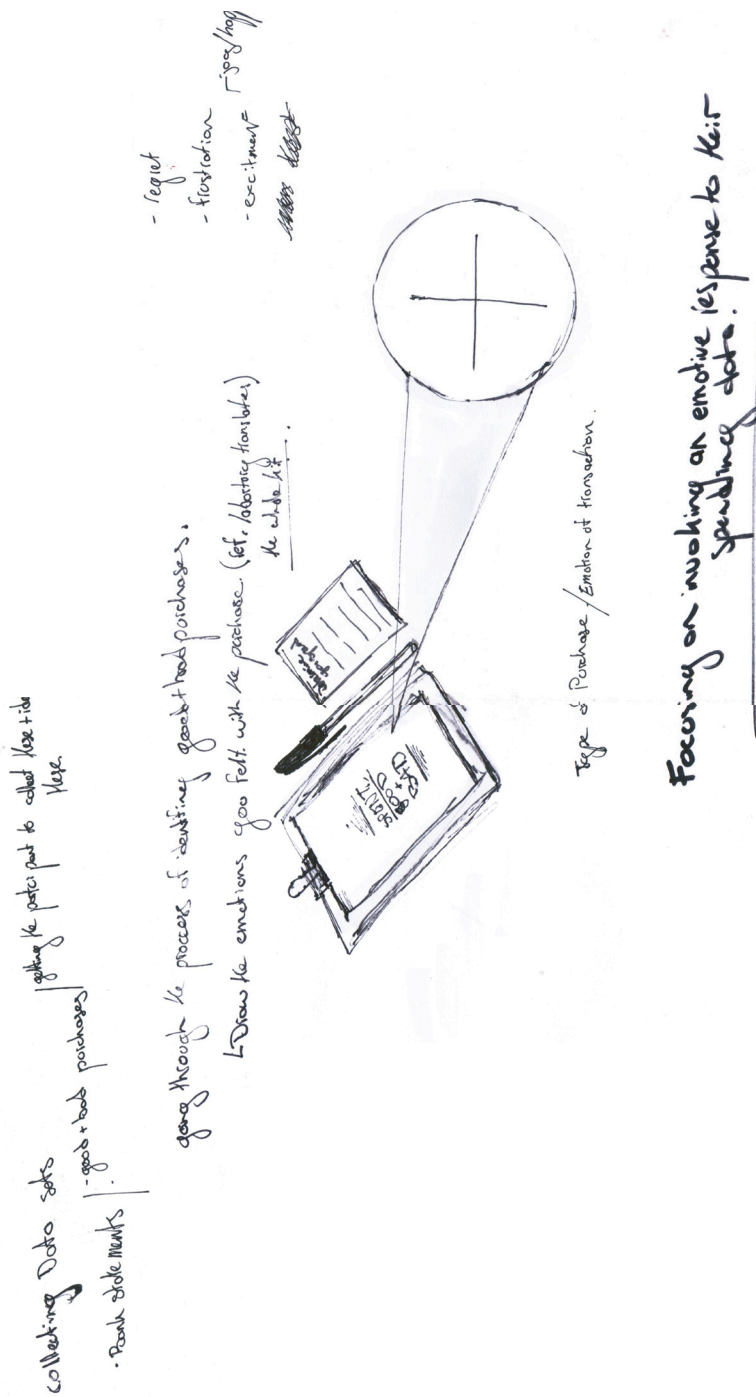 collecting Data sets
- Bank statements
- good + bad purchases
getting the participant to collect these + idea
these.
going through the process of identifing good + bad purchases.
Draw the emotions you felt with the purchase. (ref. labortory translates)
the whole kit
- regret
- frustration
- excitment
SPENT.
GOOD/
BAD
Type of Purchase / Emotion of transaction.
Focusing on invoking an emotive response to their
spending data.